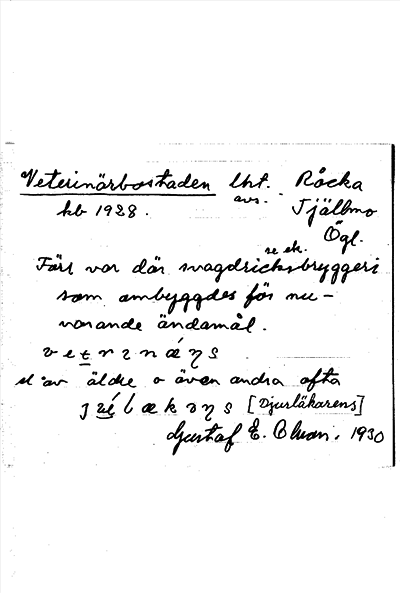 Veterinärbostaden lht. Råcka
hb 1928. avs. Tjällmo
Ögl.
se ek.
Förr var där svagdricksbryggeri
som ombyggdes för nu-
varande ändamål.
el. av äldre o även andra ofta
[Djurläkarens]
Gustaf E. Olson. 1930